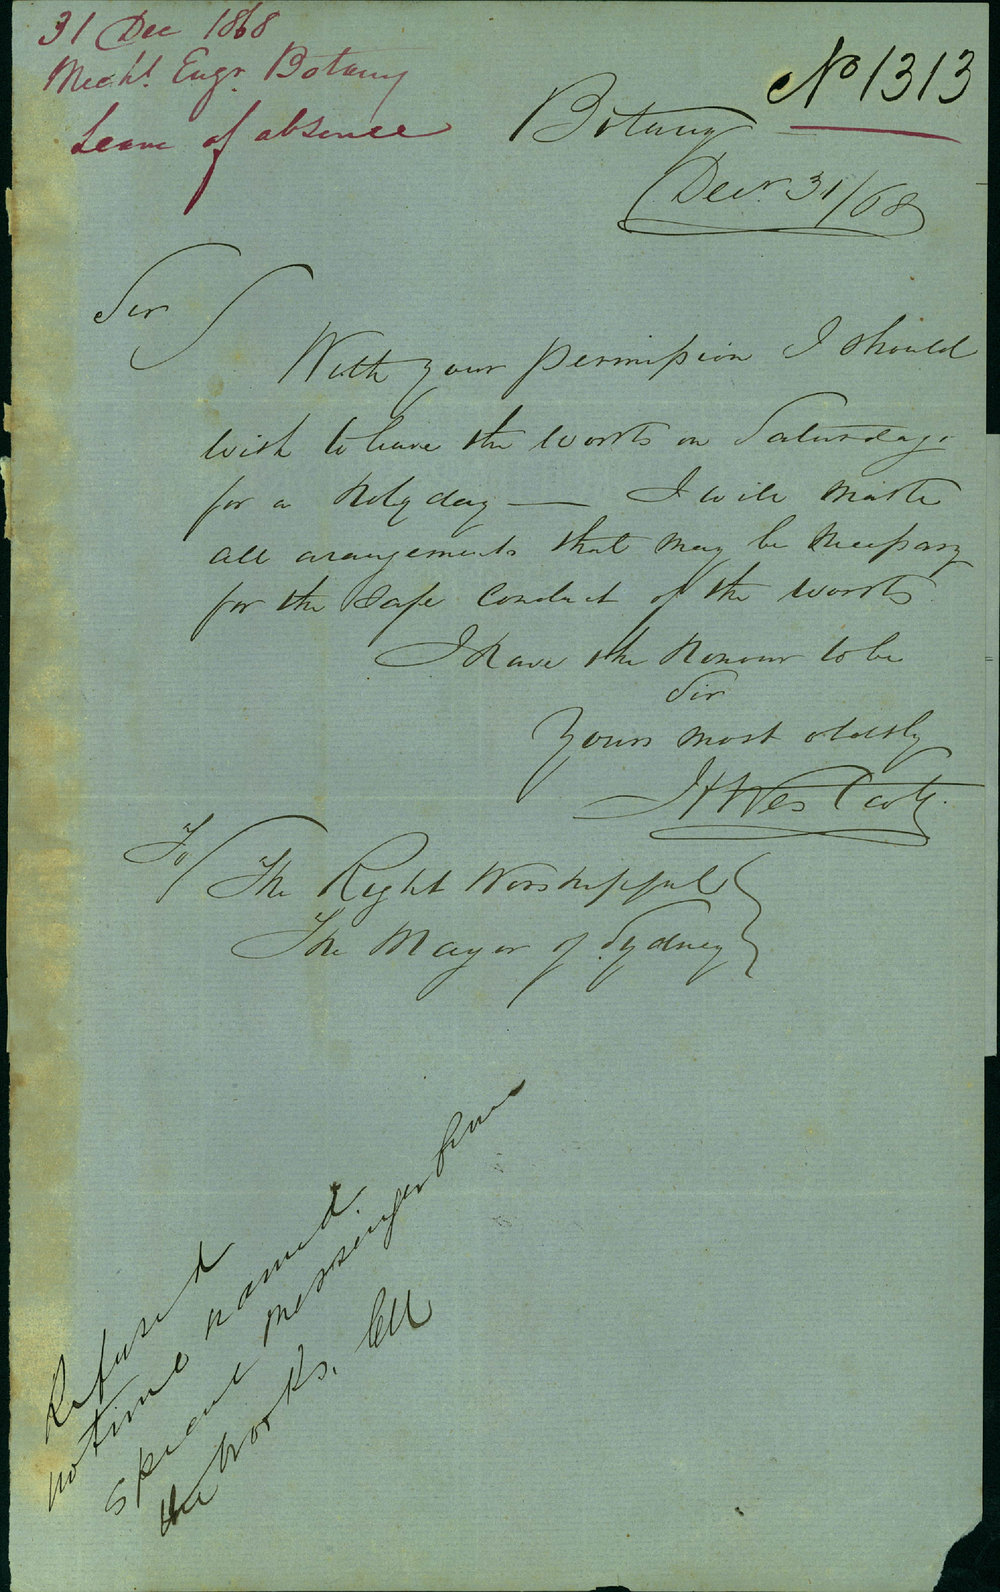 31 Dec 1868
Mechl. Engr. Botany
Leave of absence
No 1313
Botany
Decr. 31/68
Sir
With your permission I should
wish to leave the works on Saturday
for a holyday — I will make
all arangements that may be necessary
for the safe conduct of the works
I have the honour to be
Sir
Yours most obdtly
To/ The Right Worshippful
The Mayor of Sydney
Refused
no time named.
special messenger from
the works.